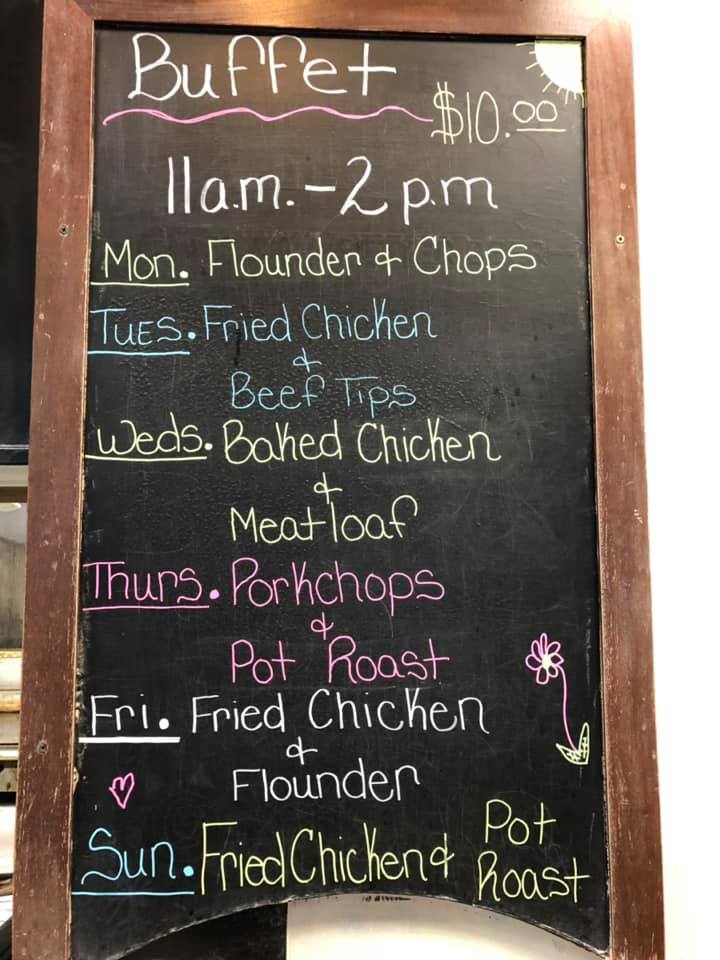 Buffet
$10.00
11a.m.-2 p.m
Mon. Flounder & Chops
Tues. Fried Chicken
&
Beef Tips
Weds. Baked Chicken
&
Meatloaf
Thurs. Porkchops
&
Pot Roast
Fri. Fried Chicken
&
Flounder
Sun. Fried Chicken & Pot
Roast